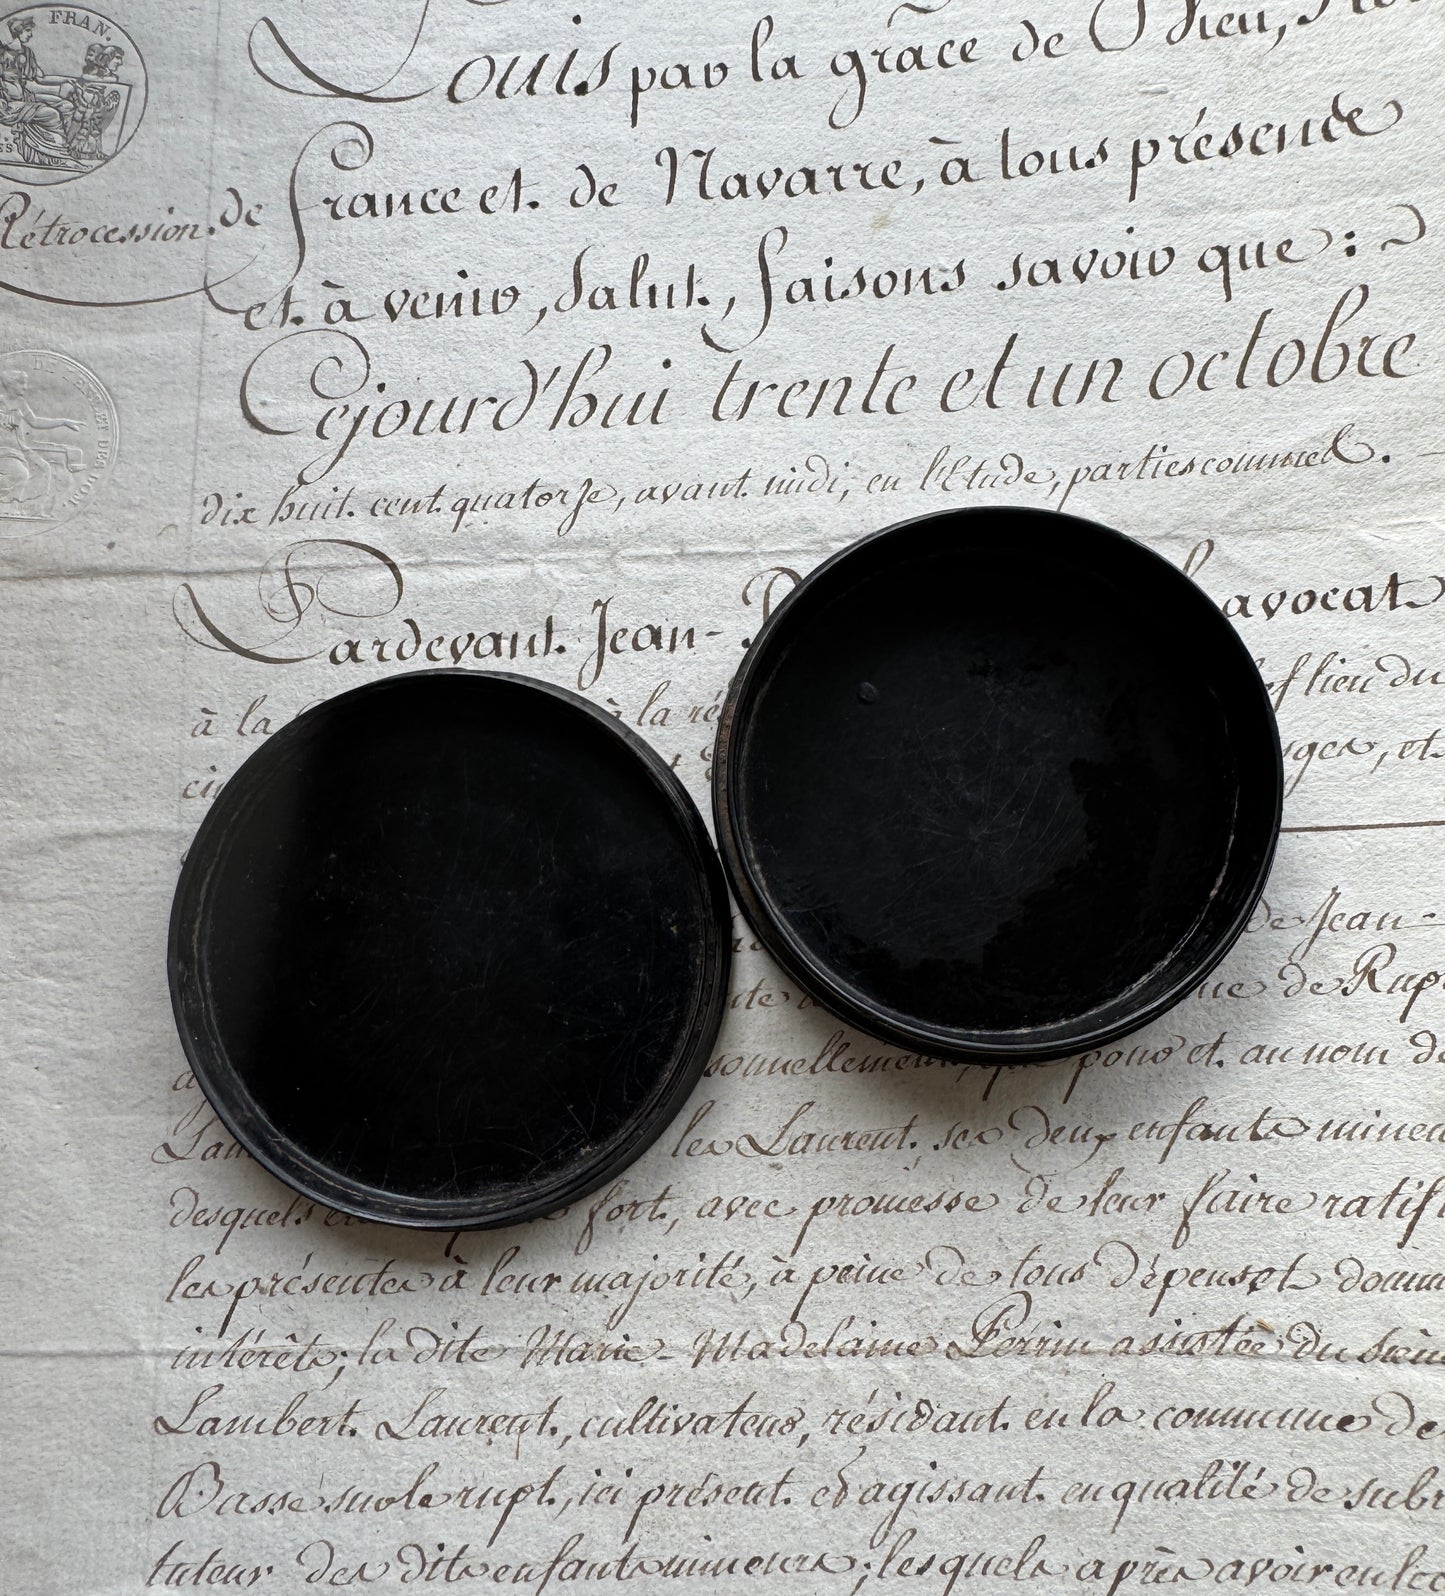 FRAN.
Louis par la grâce de Dieu, Roi
Rétrocession. de france et de Navarre, à tous présens
et à venir, Salut, faisons savoir que :
Cejourd'hui trente et un octobre
dix huit cent quatorze, avant midi, en l'Etude, parties comme
Pardevant Jean- avocat
à la à la ré lieu du
et
de Jean-
de Rupt
sonnellement, que pour et au nom de
les Laurent, ses deux enfants mineu
desquels fort, avec promesse de leur faire ratifi
les présentes à leur majorité, à peine de tous dépens et domm
intérêts; la dite Marie-Madelaine Perrin assistée du Sieu
Lambert Laurent, cultivateur, résidant en la commune de
Basse sur le rupt, ici présent et agissant en qualité de subr
tuteur des dits enfants mineurs; lesquels après avoir en lec